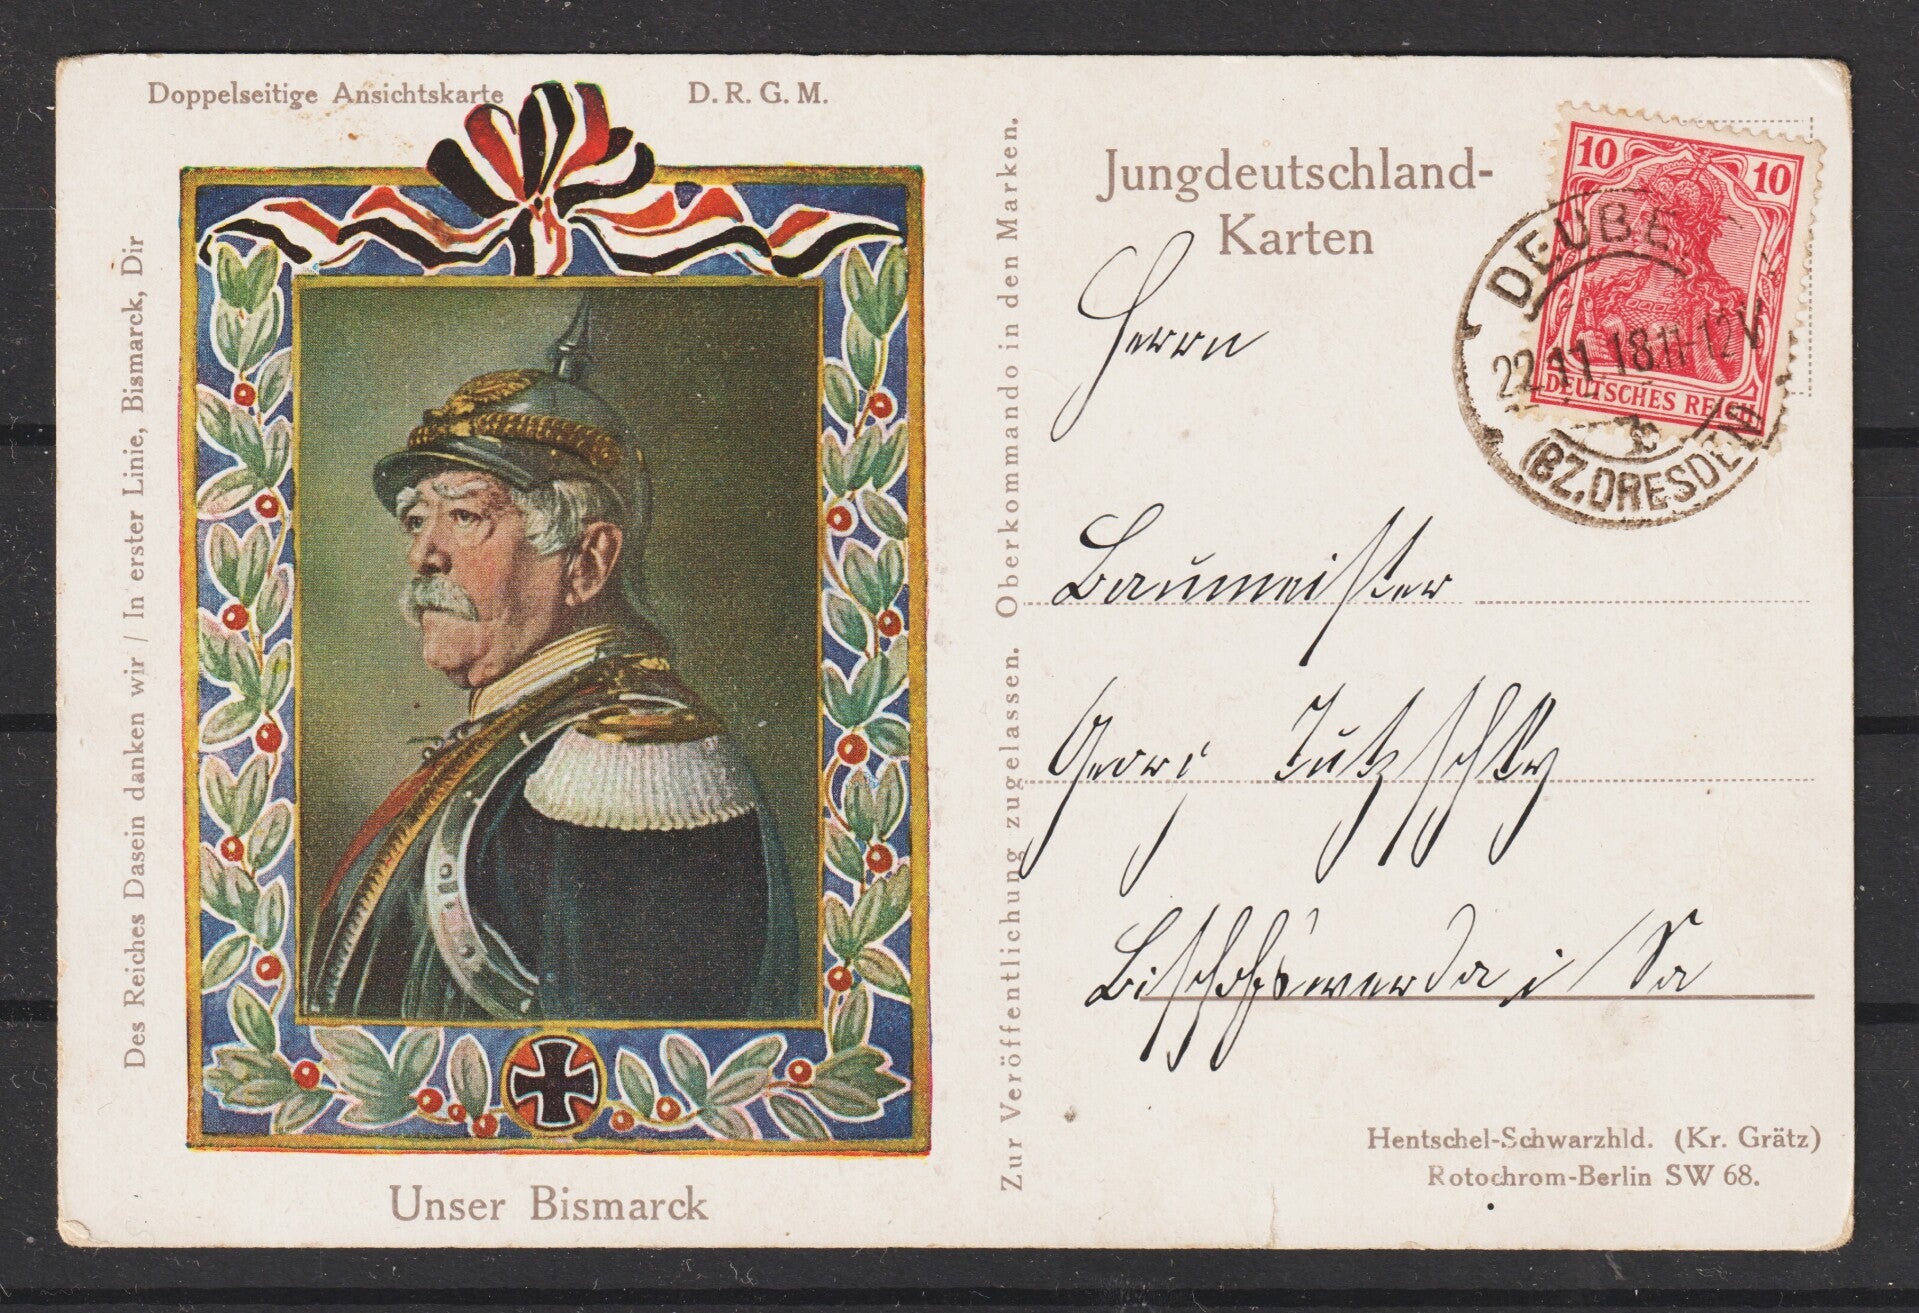 Doppelseitige Ansichtskarte D. R. G. M.
Des Reiches Dasein danken wir / In erster Linie, Bismarck, Dir
Unser Bismarck
Zur Veröffentlichung zugelassen. Oberkommando in den Marken.
Jungdeutschland-
Karten
10 10
DEUTSCHES REICH
DEUBEN
22.11.18.11-12V
(BZ.DRESDEN)
Herrn
Baumeister
Georg
Bischofswerda i/Sa
Hentschel-Schwarzhld. (Kr. Grätz)
Rotochrom-Berlin SW 68.